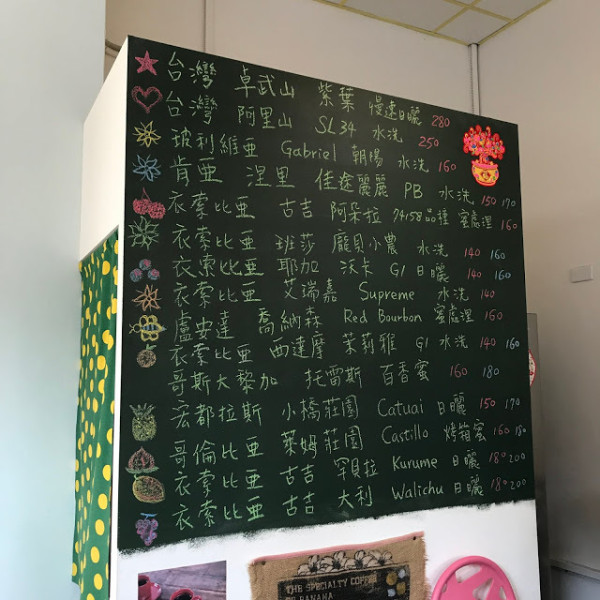 台灣 卓武山 紫葉 慢速日曬 280
台灣 阿里山 SL34 水洗 250
玻利維亞 Gabriel 朝陽 水洗 160
肯亞 涅里 佳途麗麗 PB 水洗 150 170
衣索比亞 古吉 阿朵拉 74158品種 蜜處理 160
衣索比亞 班莎 龐貝小農 水洗 140 160
衣索比亞 耶加 沃卡 G1 日曬 140 160
衣索比亞 艾瑞嘉 Supreme 水洗 140
盧安達 喬納森 Red Bourbon 蜜處理 160
衣索比亞 西達摩 茉莉雅 G1 水洗 140 160
哥斯大黎加 托雷斯 百香蜜 160 180
宏都拉斯 小橋莊園 Catuai 日曬 150 170
哥倫比亞 萊姆莊園 Castillo 烤箱蜜 160 180
衣索比亞 古吉 罕貝拉 Kurume 日曬 180 200
衣索比亞 古吉 大利 Walichu 日曬 180 200
THE SPECIALTY COFFEE
PANAMA